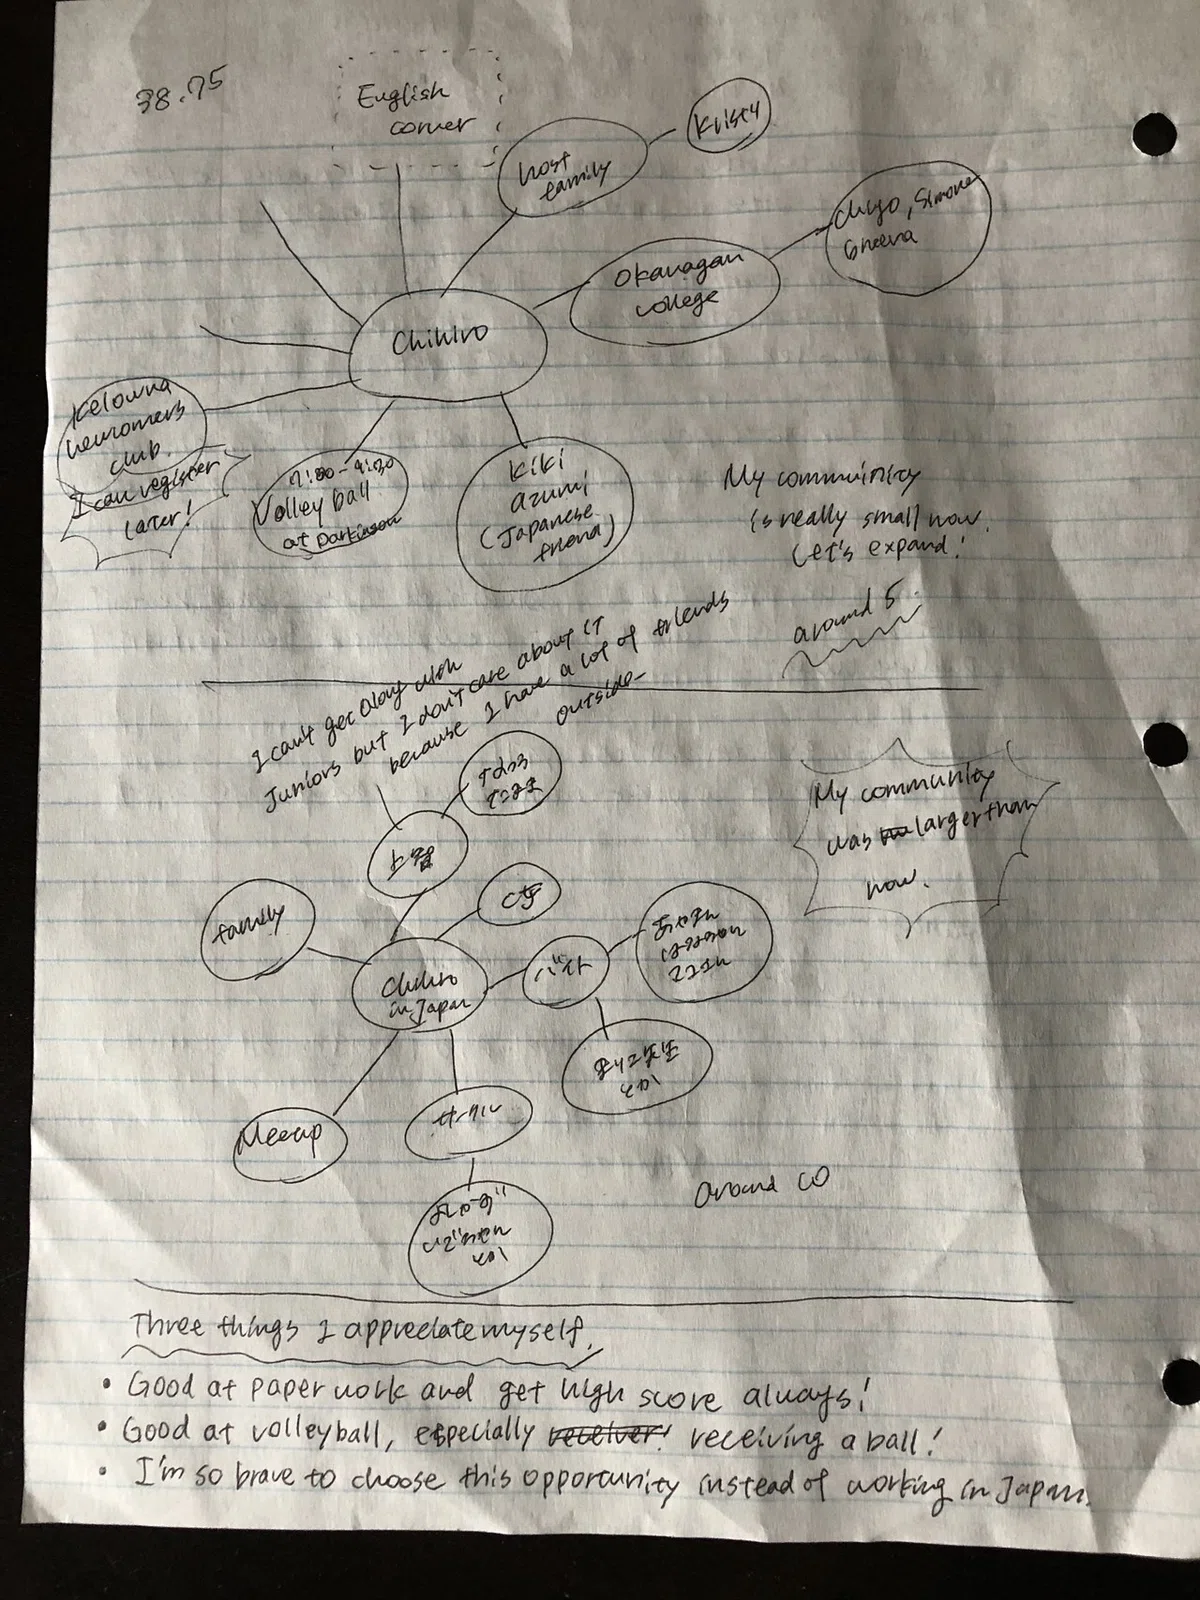 38.75
English
corner
host
family
Kristy
Okanagan
college
Simona
Chihiro
Kelowna
newcomers
club.
I can register
later!
Volleyball
at Parkinson
Kiki
azumi
(Japanese
friend)
My community
is really small now.
Let's expand!
around 5.
I can't get along with
Juniors but I don't care about it
because I have a lot of friends
outside
My community
was larger than
now.
上智
family
Chihiro
in Japan
バイト
先生
とか
Meetup
サークル
とか
Around
Three things I appreciate myself.
• Good at paper work and get high score always!
• Good at volleyball, especially receiver! receiving a ball!
• I'm so brave to choose this opportunity instead of working in Japan.